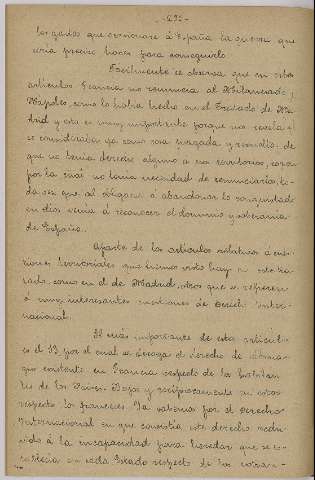 -292-
los gastos que ocasionare á España la guerra que
seria preciso hacer para conseguirlo.
Facilmente se observa que en estos
articulos Francia no renuncia al Milanesado,
Napoles, como lo habia hecho en el Tratado de Ma-
drid y esto es muy importante porque nos revela q
se consideraba ya como cosa juzgada y resuelta de
que no tenia derecho alguno á esos territorios, razon
por la cual no tenia necesidad de renunciarlos, to-
da vez que al obligarse á abandonar lo conquistado
en ellos venia á reconocer el dominio y soberania
de España.
Aparte de los articulos relativos á ce-
siones territoriales que hemos visto hay en este tra-
tado como en el de Madrid, otros que se refieren
á muy interesantes cuestiones de derecho inter-
nacional.
El más importante de estos articulos
es el 19 por el cual se deroga el derecho de
que existente en Francia respecto de los habitan-
tes de los Paises Bajos y reciprocamente en estos
respecto los franceses. Ya sabemos por el derecho
internacional en que consistia este derecho redu-
cido á la incapacidad para heredar que se es-
tablecia en cada Estado respecto de los extran-